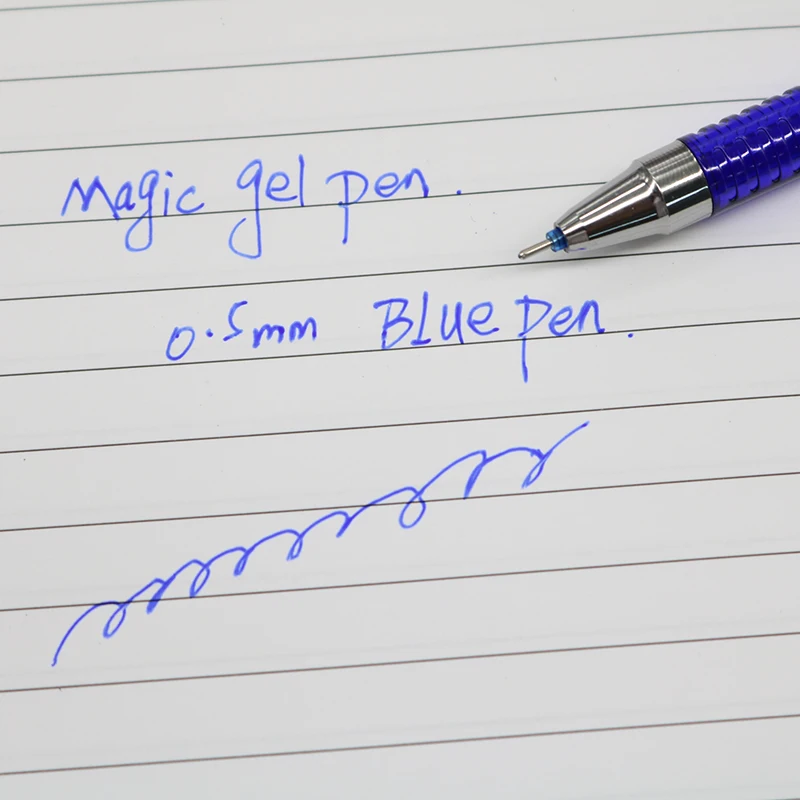 Magic gel pen.
0.5mm BLue pen.